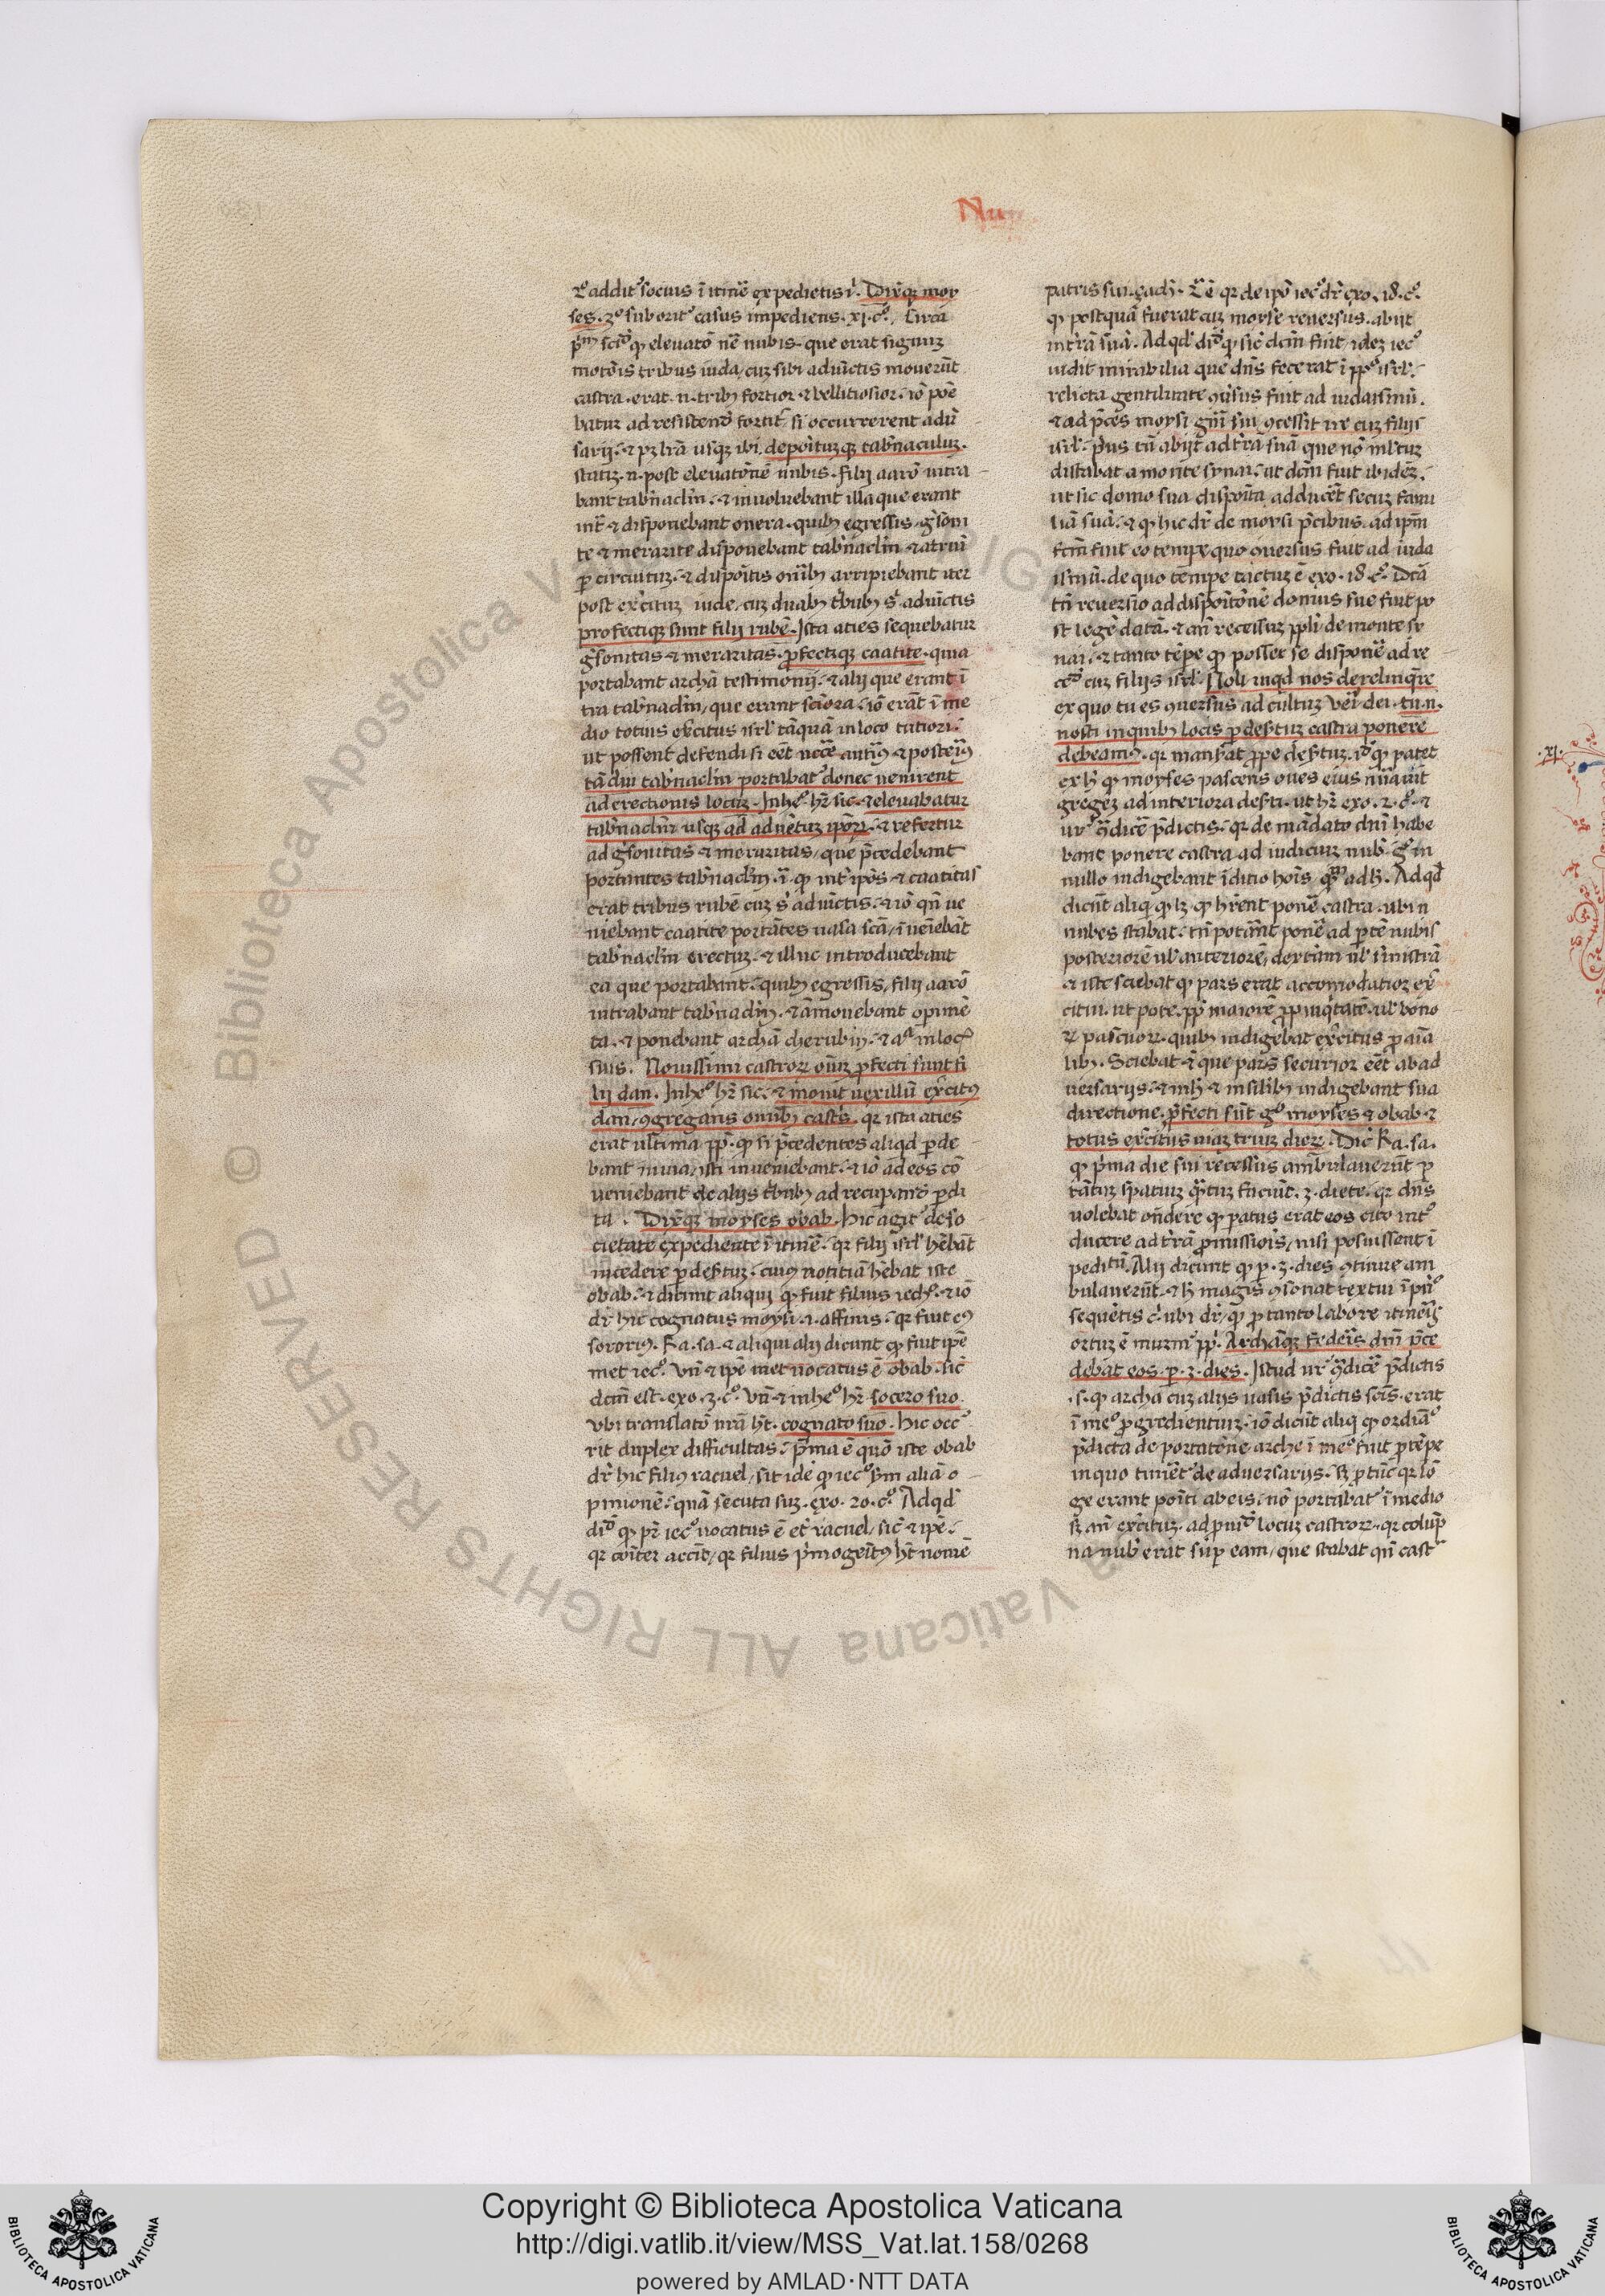 Nu
2º addit᷑ socius ī itine᷑ expedietis i᷑. Dixitqꝫ moy
ses. 3º suborit᷑ casus impediens .xj. cº. Circa
pᵐ sciᵈ ꝙ eleuatō nē nubis que erat signuꝫ
motōis tribus iuda, cuꝫ sibi adiūctis mouerūt
castra. erat .n. tribꝫ fortior ⁊ bellicosior. iō pone
batur ad resistendᵘ fortit᷑ si occurrerent adū
sarij. ⁊ pꝫ lr̄a usqꝫ ibi. depoītuꝫqꝫ tab̄naculuꝫ.
statiꝫ .n. post eleuatōnē nubis. filij aarō intra
bant tab̄naclm̄. ⁊ inuoluebant illa que erant
int᷑ ⁊ disponebant onera. quibꝫ egressis, g᷑soni
te ⁊ merarite disponebant tab̄naclm̄ ⁊ atriū
ꝑ circuituꝫ. ⁊ dispoītis oībꝫ arripiebant iter
post exc̄ituꝫ iude, cuꝫ duabꝫ t᷑bubꝫ s᷑ adiūctis
profectiqꝫ sunt filij rubē. Ista acies sequebatur
g᷑sonitas ⁊ meraritas. ꝓfectiqꝫ caatite. quia
portabant archā testimonij. ⁊ alij que erant ī
tra tab̄naclm̄, que erant sc̄iora. iō erāt ī me
dio totius exc̄itus isrl᷑ tāquā in loco tutiori.
ut possent defendi si eēt necc̄e anti᷑ꝰ ⁊ posteri᷑ꝰ
tā diu tab̄naclm̄ portabat᷑ donec uenirent
ad erectionis locuꝫ. In heº hr̄ sic. ⁊ eleuabatur
tab̄naclm̄ usqꝫ ad aduētuꝫ ipōꝝ. ⁊ refertur
ad g᷑sonitas ⁊ meraritas, que p̄cedebant
portantes tab̄naclm̄. ī. ꝙ int᷑ ipōs ⁊ caatitas
erat tribus rubē cuꝫ s᷑ adiūctis. ⁊ iō qn̄ ue
niebant caatite portātes uasa sc̄a, īueiēbāt
tab̄naclm̄ erectuꝫ. ⁊ illuc introducebant
ea que portabant. quibꝫ egressis, filij aarō
intrabant tab̄naclm̄. ⁊ āmouebant opimē
ta. ⁊ ponebant archā cherubin. ⁊ aˡ in locꝭ
suis. Nouissimi castroꝝ oīuꝫ ꝓfecti sunt fi
lij dan. In heº hr̄ sic. ⁊ mouit uexillū exc̄itꝰ
dan, ꝯgregans oībꝫ cast᷑s. qꝛ ista acies
erat ultima ꝓp᷑. ꝙ si p̄cedentes aliqd ꝑde
bant in uia, isti inueniebant. ⁊ iō ad eos cō
ueniebant de alijs t᷑bubꝫ ad recuꝑandᵘ ꝑdi
ta. Dixitqꝫ moyses obab. Hic agit᷑ de so
cietate expediente ī itine᷑. qꝛ filij isrl᷑ hēbāt
incedere ꝑ des᷑tuꝫ. cuiꝰ notitiā hēbat iste
obab. ⁊ dicunt aliqui ꝙ fuit filius iecº. ⁊ iō
dr̄ hic cognatus moysi .i. affinis. qꝛ fuit eiꝰ
sororiꝰ. Ra. sa. ⁊ aliqui alij dicunt ꝙ fuit ipē
met iecº. Vn̄ ⁊ ipē met uocatus ē obab. sic̄
dc̄m est. exo. 3. cº. Vn̄ ⁊ in heº hr̄. socero suo
Vbi translatō nr̄a ht̄. cognato suo. Hic occ᷑
rit duplex difficultas. pͥma ē quō iste obab
dr̄ hic filiꝰ raouel, sit idē ꝙ iecº s᷑m aliā o
pinionē. quā secuta suꝫ. exo. 20. cº. Ad qd
dīᵈ ꝙ pr̄ iecº uocatus ē et᷑ raouel, sic̄ ⁊ ipē.
qꝛ cōīter accīt, qꝛ filius pͥmogenitꝰ ht̄ nomē
patris sui. Scd̄a ē qꝛ de ipō iecº dr̄ exo. 18. cº.
ꝙ postquā fuerat cuꝫ moyse reuersus. abijt
in t᷑rā suā. Ad qd dīᵈ ꝙ sic̄ dc̄m fuit, ideꝫ iecº
uidit mirabilia que dn̄s fecerat ī ppº isrl᷑.
relicta gentilitate ꝯuersus fuit ad iudaismū.
⁊ ad p̄ces moysi gn̄i sui ꝯcessit ire cuꝫ filijs
isrl᷑. pͥus tn̄ abijt ad t᷑ra suā que nō mltuꝫ
distabat a monte synai. ut dc̄m fuit ibideꝫ.
ut sic domo sua dispoīta adducēt secuꝫ fami
liā suā. ⁊ ꝙ hic dr̄ de moysi p̄cibus. ad ipm̄
fc̄m fuit eo tempe quo ꝯuersus fuit ad iuda
ismū. de quo tempe tactuꝫ ē exo. 18. cº. Dc̄a
tn̄ reuersio ad dispoītōnē domus sue fuit po
st legē datā. ⁊ an̄ recessuꝫ ppli de monte sy
nai. ⁊ tanto tēpe ꝙ posset se disponē ad re
cedᵈ cuꝫ filijs isrl᷑. Noli inqd nos derelinq̄re
ex quo tu es ꝯuersus ad cultuꝫ ueri dei. tu .n.
nosti in quibꝫ locis ꝑ des᷑tuꝫ castra ponere
debeamꝰ. qꝛ mansᵃat ꝓpe des᷑tuꝫ. iᵈ ꝙ patet
ex hͦ ꝙ moyses pascens oues eius minauit
gregeꝫ ad interiora des᷑ti. ut hr̄ exo. 2. cº. ⁊
ur̄ ꝯᵃdicē p̄dictis. qꝛ de mādato dn̄i habe
bant ponere castra ad iudiciuꝫ nub᷑. gº in
nullo indigebant īditio hoīs, qᵐ ad hͦ. Ad qd
dicūt aliqͥ ꝙ lꝫ ꝙ hr̄ent ponē castra. ubi n
nubes stabat. tn̄ potāt ponē ad ꝑtē nubis
posteriorē ul᷑ anteriorē, dextām ul᷑ sinistrā
⁊ iste sciebat ꝙ pars erat accomodatior ex᷑
citui. ut pote. ꝓp᷑ maiorē ꝓpinq̄tatē. ul᷑ bono
ꝝ pascuoꝝ. quibꝫ indigebat exc̄itus ꝓ aīa
libꝫ. Sciebat ⁊ que pars securior eēt ab ad
uersarijs. ⁊ in hͦ ⁊ in silībꝫ indigebant sua
directione. ꝓfecti sūt gº moyses ⁊ obab ⁊
totus exc̄itus uiaꝫ triuꝫ dieꝝ. Dic̄ Ra. sa.
ꝙ pͥma die sui recessus ambulauerūt ꝑ
tātuꝫ spatiuꝫ qᵃtuꝫ faciūt .3. diete. qꝛ dn̄s
uolebat on̄dere ꝙ ꝑatus erat eos cito int᷑
ducere ad t᷑rā ꝓmissiōis, nisi posuissent ī
pedītū. Alij dicunt ꝙ ꝑ .3. dies ꝯtinue am
bulauerūt. ⁊ hͦ magis ꝯsonat textui ī pnͥº
sequētis c̄. ubi dr̄, ꝙ ꝓ tanto labore itinerꝭ
ortuꝫ ē murm᷑ pp̄i. Archaqꝫ federis dn̄i p̄ce
debat eos. ꝑ .3. dies. Istud ur̄ ꝯᵃdicē p̄dictis
.s. ꝙ archa cuꝫ alijs uasis p̄dictis sc̄is. erat
ī meº ꝓgredientiuꝫ. iō dicūt aliqͥ ꝙ ordīaº
p̄dicta de portatōne arche ī meº fuit ꝓ tēpe
in quo timēt᷑ de aduersarijs. sꝫ ꝓ tūc qꝛ lō
ge erant poīti ab eis. nō portabat᷑ ī medio
sꝫ an̄ exc̄ituꝫ. ad ꝓuidᵈ locuꝫ castroꝝ. qꝛ colūp
na nub᷑ erat suꝑ eam, que stabat qn̄ cast᷑
.xj.
Copyright © Biblioteca Apostolica Vaticana
http://digi.vatlib.it/view/MSS_Vat.lat.158/0268
powered by AMLAD·NTT DATA
BIBLIOTECA APOSTOLICA VATICANA
BIBLIOTECA APOSTOLICA VATICANA
© Biblioteca Apostolica Vaticana ALL RIGHTS RESERVED